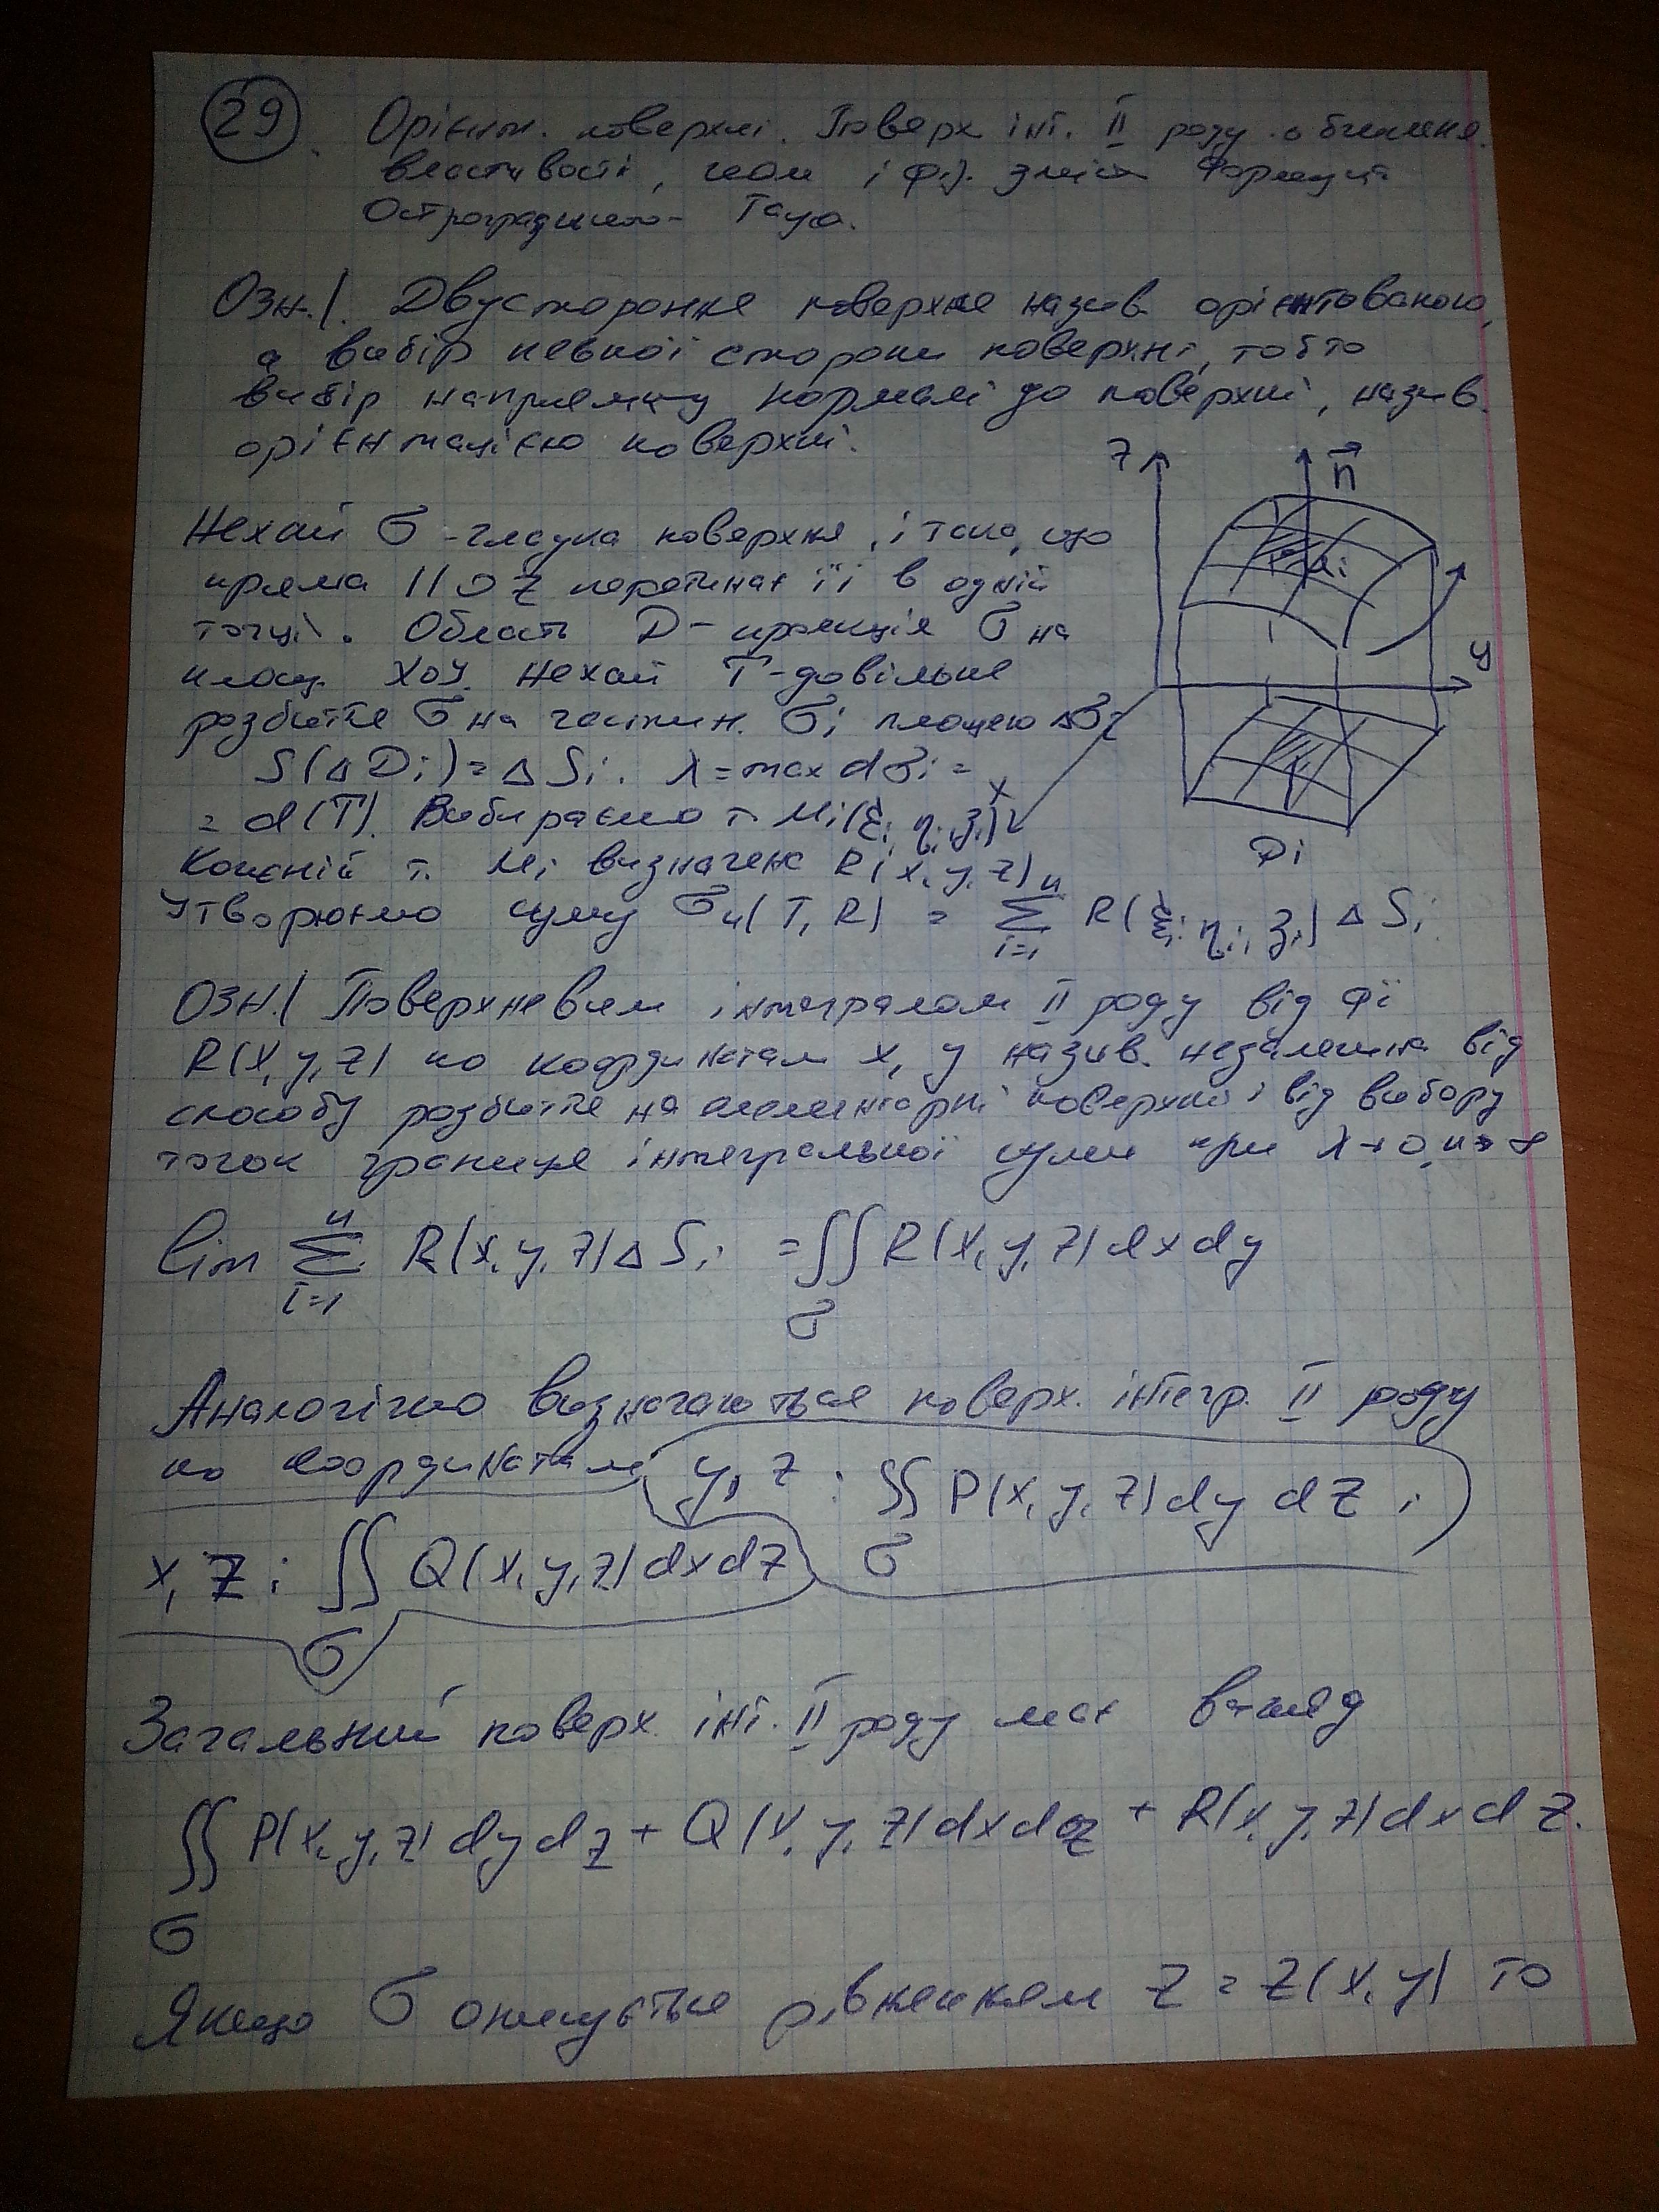 29. Орієнт. поверхні. Поверх інт. II роду обчислення.
властивості, геом і фіз. зміст Формула
Остроградського- Гауса.
Озн.! Двустороння поверхня назив орієнтованою,
а вибір певної сторони поверхні, тобто
вибір напрямку нормалі до поверхні, назив.
орієнтацією поверхні.
z n⃗
Нехай σ -гладка поверхня, і така, що
пряма || OZ перетинає її в одній
точці. Область D- проекція σ на
площ. XOY. Нехай T-довільне
y
розбиття σ на частин. σi площею Δσi
S(ΔDi) = ΔSi. λ = max dσi =
x
= d(T). Вибираємо т. Mi(ξi, ηi, ζi)
Di
Кожній т. Mi визначена R(x, y, z)
Утворюємо суму σn(T, R) = Σ i=1 n R(ξi, ηi, ζi) ΔSi
ОЗН.! Поверхневим інтегралом II роду від ф-ї
R(x, y, z) по координатам x, y назив. незалежна від
способу розбиття на елементарні поверхні і від вибору
точок границя інтегральної суми при λ→0, n→∞
lim Σ i=1 n R(x, y, z) ΔSi = ∬σ R(x, y, z) dx dy
Аналогічно визначаються поверх. інтегр. II роду
по координатам y, z : ∬σ P(x, y, z) dy dz ;
x, z : ∬σ Q(x, y, z) dx dz
Загальний поверх. інт. II роду має вигляд
∬σ P(x, y, z) dy dz + Q(x, y, z) dx dz + R(x, y, z) dx dz.
Якщо σ описується рівнянням z = z(x, y) то